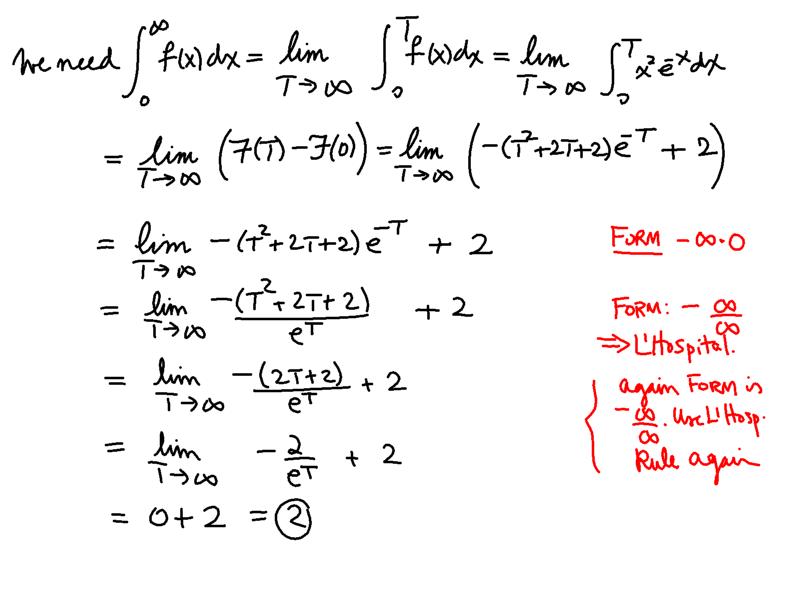 We need ∫₀^∞ f(x)dx = lim T→∞ ∫₀^T f(x)dx = lim T→∞ ∫₀^T x² e^-x dx
= lim T→∞ (F(T) - F(0)) = lim T→∞ (-(T²+2T+2)e^-T + 2)
= lim T→∞ -(T²+2T+2)e^-T + 2
FORM -∞·0
= lim T→∞ -(T²+2T+2)/e^T + 2
FORM: - ∞/∞
⇒ L'Hospital.
= lim T→∞ -(2T+2)/e^T + 2
again FORM is
-∞/∞. Use L'Hosp.
Rule again
= lim T→∞ -2/e^T + 2
= 0+2 = 2